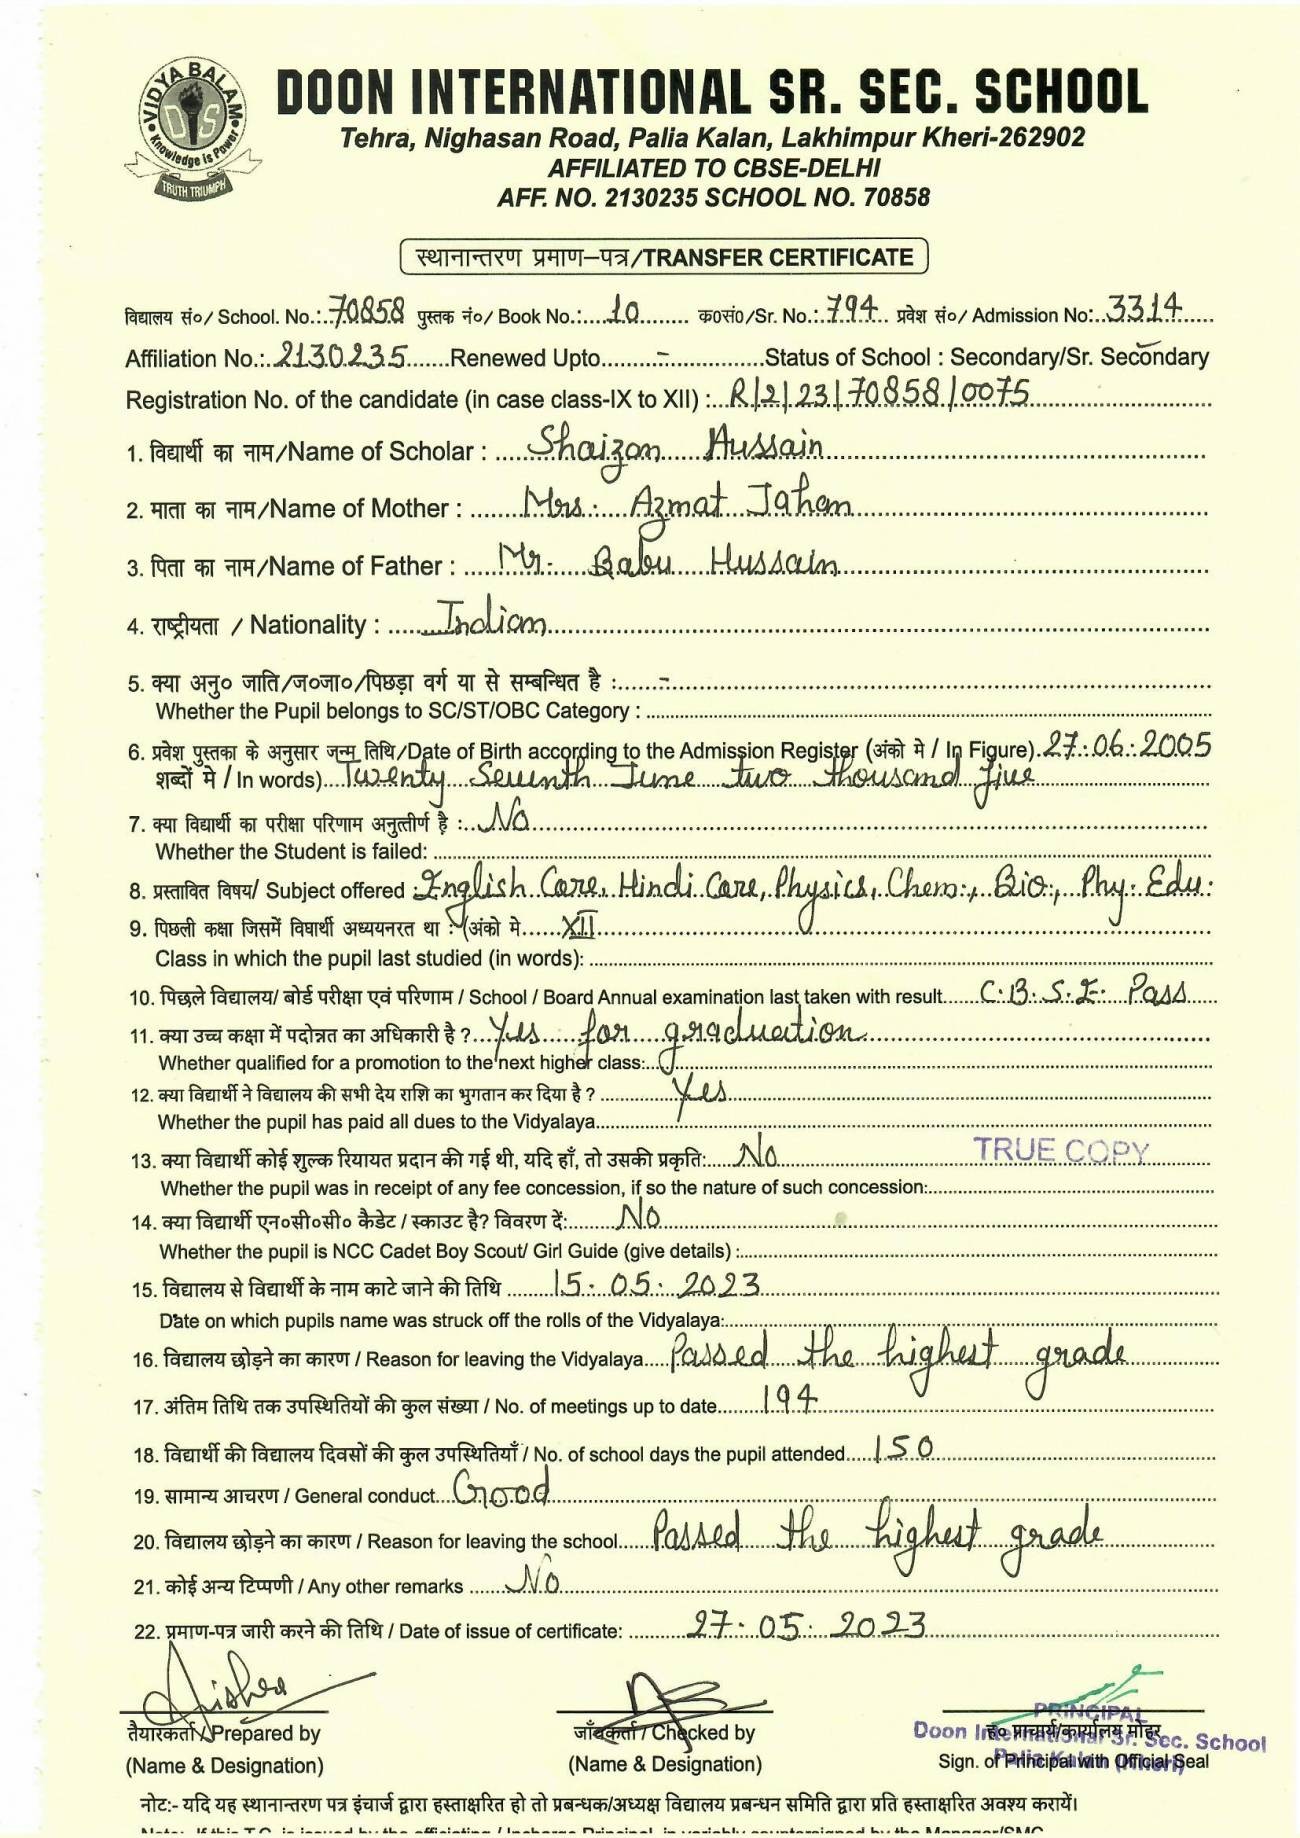 VIDYA BALAM
DIS
Knowledge is Power
TRUTH TRIUMPH
DOON INTERNATIONAL SR. SEC. SCHOOL
Tehra, Nighasan Road, Palia Kalan, Lakhimpur Kheri-262902
AFFILIATED TO CBSE-DELHI
AFF. NO. 2130235 SCHOOL NO. 70858
स्थानान्तरण प्रमाण–पत्र/TRANSFER CERTIFICATE
विद्यालय सं०/ School. No.: 70858 पुस्तक नं०/ Book No.: 10 क०सं०/Sr. No.: 794 प्रवेश सं०/ Admission No: 3314
Affiliation No.: 2130235 Renewed Upto - Status of School : Secondary/Sr. Secondary
Registration No. of the candidate (in case class-IX to XII) : R/2/23/70858/0075
1. विद्यार्थी का नाम/Name of Scholar : Shaizan Hussain
2. माता का नाम/Name of Mother : Mrs. Azmat Jahan
3. पिता का नाम/Name of Father : Mr. Babu Hussain
4. राष्ट्रीयता / Nationality : Indian
5. क्या अनु० जाति/ज०जा०/पिछड़ा वर्ग या से सम्बन्धित है : -
Whether the Pupil belongs to SC/ST/OBC Category :
6. प्रवेश पुस्तका के अनुसार जन्म तिथि/Date of Birth according to the Admission Register (अंको मे / In Figure). 27.06.2005
शब्दों मे / In words) Twenty Seventh June two thousand five
7. क्या विद्यार्थी का परीक्षा परिणाम अनुत्तीर्ण है : No
Whether the Student is failed:
8. प्रस्तावित विषय/ Subject offered : English Core, Hindi Core, Physics, Chem., Bio., Phy. Edu.
9. पिछली कक्षा जिसमें विघार्थी अध्ययनरत था : (अंको मे XII
Class in which the pupil last studied (in words):
10. पिछले विद्यालय/ बोर्ड परीक्षा एवं परिणाम / School / Board Annual examination last taken with result C.B.S.E. Pass
11. क्या उच्च कक्षा में पदोन्नत का अधिकारी है ? Yes for graduation
Whether qualified for a promotion to the next higher class:
12. क्या विद्यार्थी ने विद्यालय की सभी देय राशि का भुगतान कर दिया है ? Yes
Whether the pupil has paid all dues to the Vidyalaya
13. क्या विद्यार्थी कोई शुल्क रियायत प्रदान की गई थी, यदि हाँ, तो उसकी प्रकृति: No TRUE COPY
Whether the pupil was in receipt of any fee concession, if so the nature of such concession:
14. क्या विद्यार्थी एन०सी०सी० कैडेट / स्काउट है? विवरण दें: No
Whether the pupil is NCC Cadet Boy Scout/ Girl Guide (give details) :
15. विद्यालय से विद्यार्थी के नाम काटे जाने की तिथि 15.05.2023
Date on which pupils name was struck off the rolls of the Vidyalaya:
16. विद्यालय छोड़ने का कारण / Reason for leaving the Vidyalaya Passed the highest grade
17. अंतिम तिथि तक उपस्थितियों की कुल संख्या / No. of meetings up to date 194
18. विद्यार्थी की विद्यालय दिवसों की कुल उपस्थितियाँ / No. of school days the pupil attended 150
19. सामान्य आचरण / General conduct Good
20. विद्यालय छोड़ने का कारण / Reason for leaving the school Passed the highest grade
21. कोई अन्य टिप्पणी / Any other remarks No
22. प्रमाण-पत्र जारी करने की तिथि / Date of issue of certificate: 27.05.2023
तैयारकर्ता / Prepared by जाँचकर्ता / Checked by ह० प्राचार्य/कार्यालय मोहर
PRINCIPAL
Doon International Sr. Sec. School
Palia Kalan (Kheri)
(Name & Designation) (Name & Designation) Sign. of Principal with Official Seal
नोट:- यदि यह स्थानान्तरण पत्र इंचार्ज द्वारा हस्ताक्षरित हो तो प्रबन्धक/अध्यक्ष विद्यालय प्रबन्धन समिति द्वारा प्रति हस्ताक्षरित अवश्य करायें।